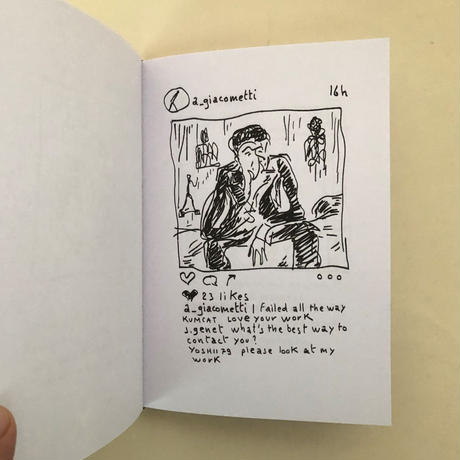 a_giacometti 16h
23 likes
a_giacometti I failed all the way
KUMCAT LOVE YOUR WORK
J.genet what's the best way to
contact you?
YOSHII79 please look at my
work